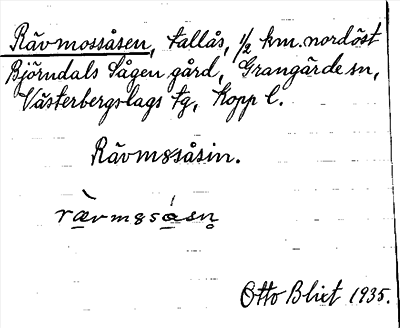 Rävmossåsen, tallås, 1/2 km. nordöst
Björndals Sågen gård, Grangärde sn,
Västerbergslags tg, Kopp l.
Rävm8såsin.
rævm8såsn̥
Otto Blixt 1935.